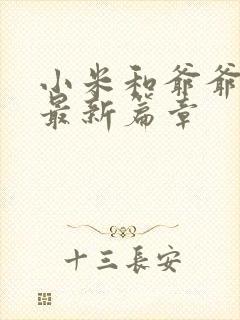 小米和爷爷
最新篇章
十三長安